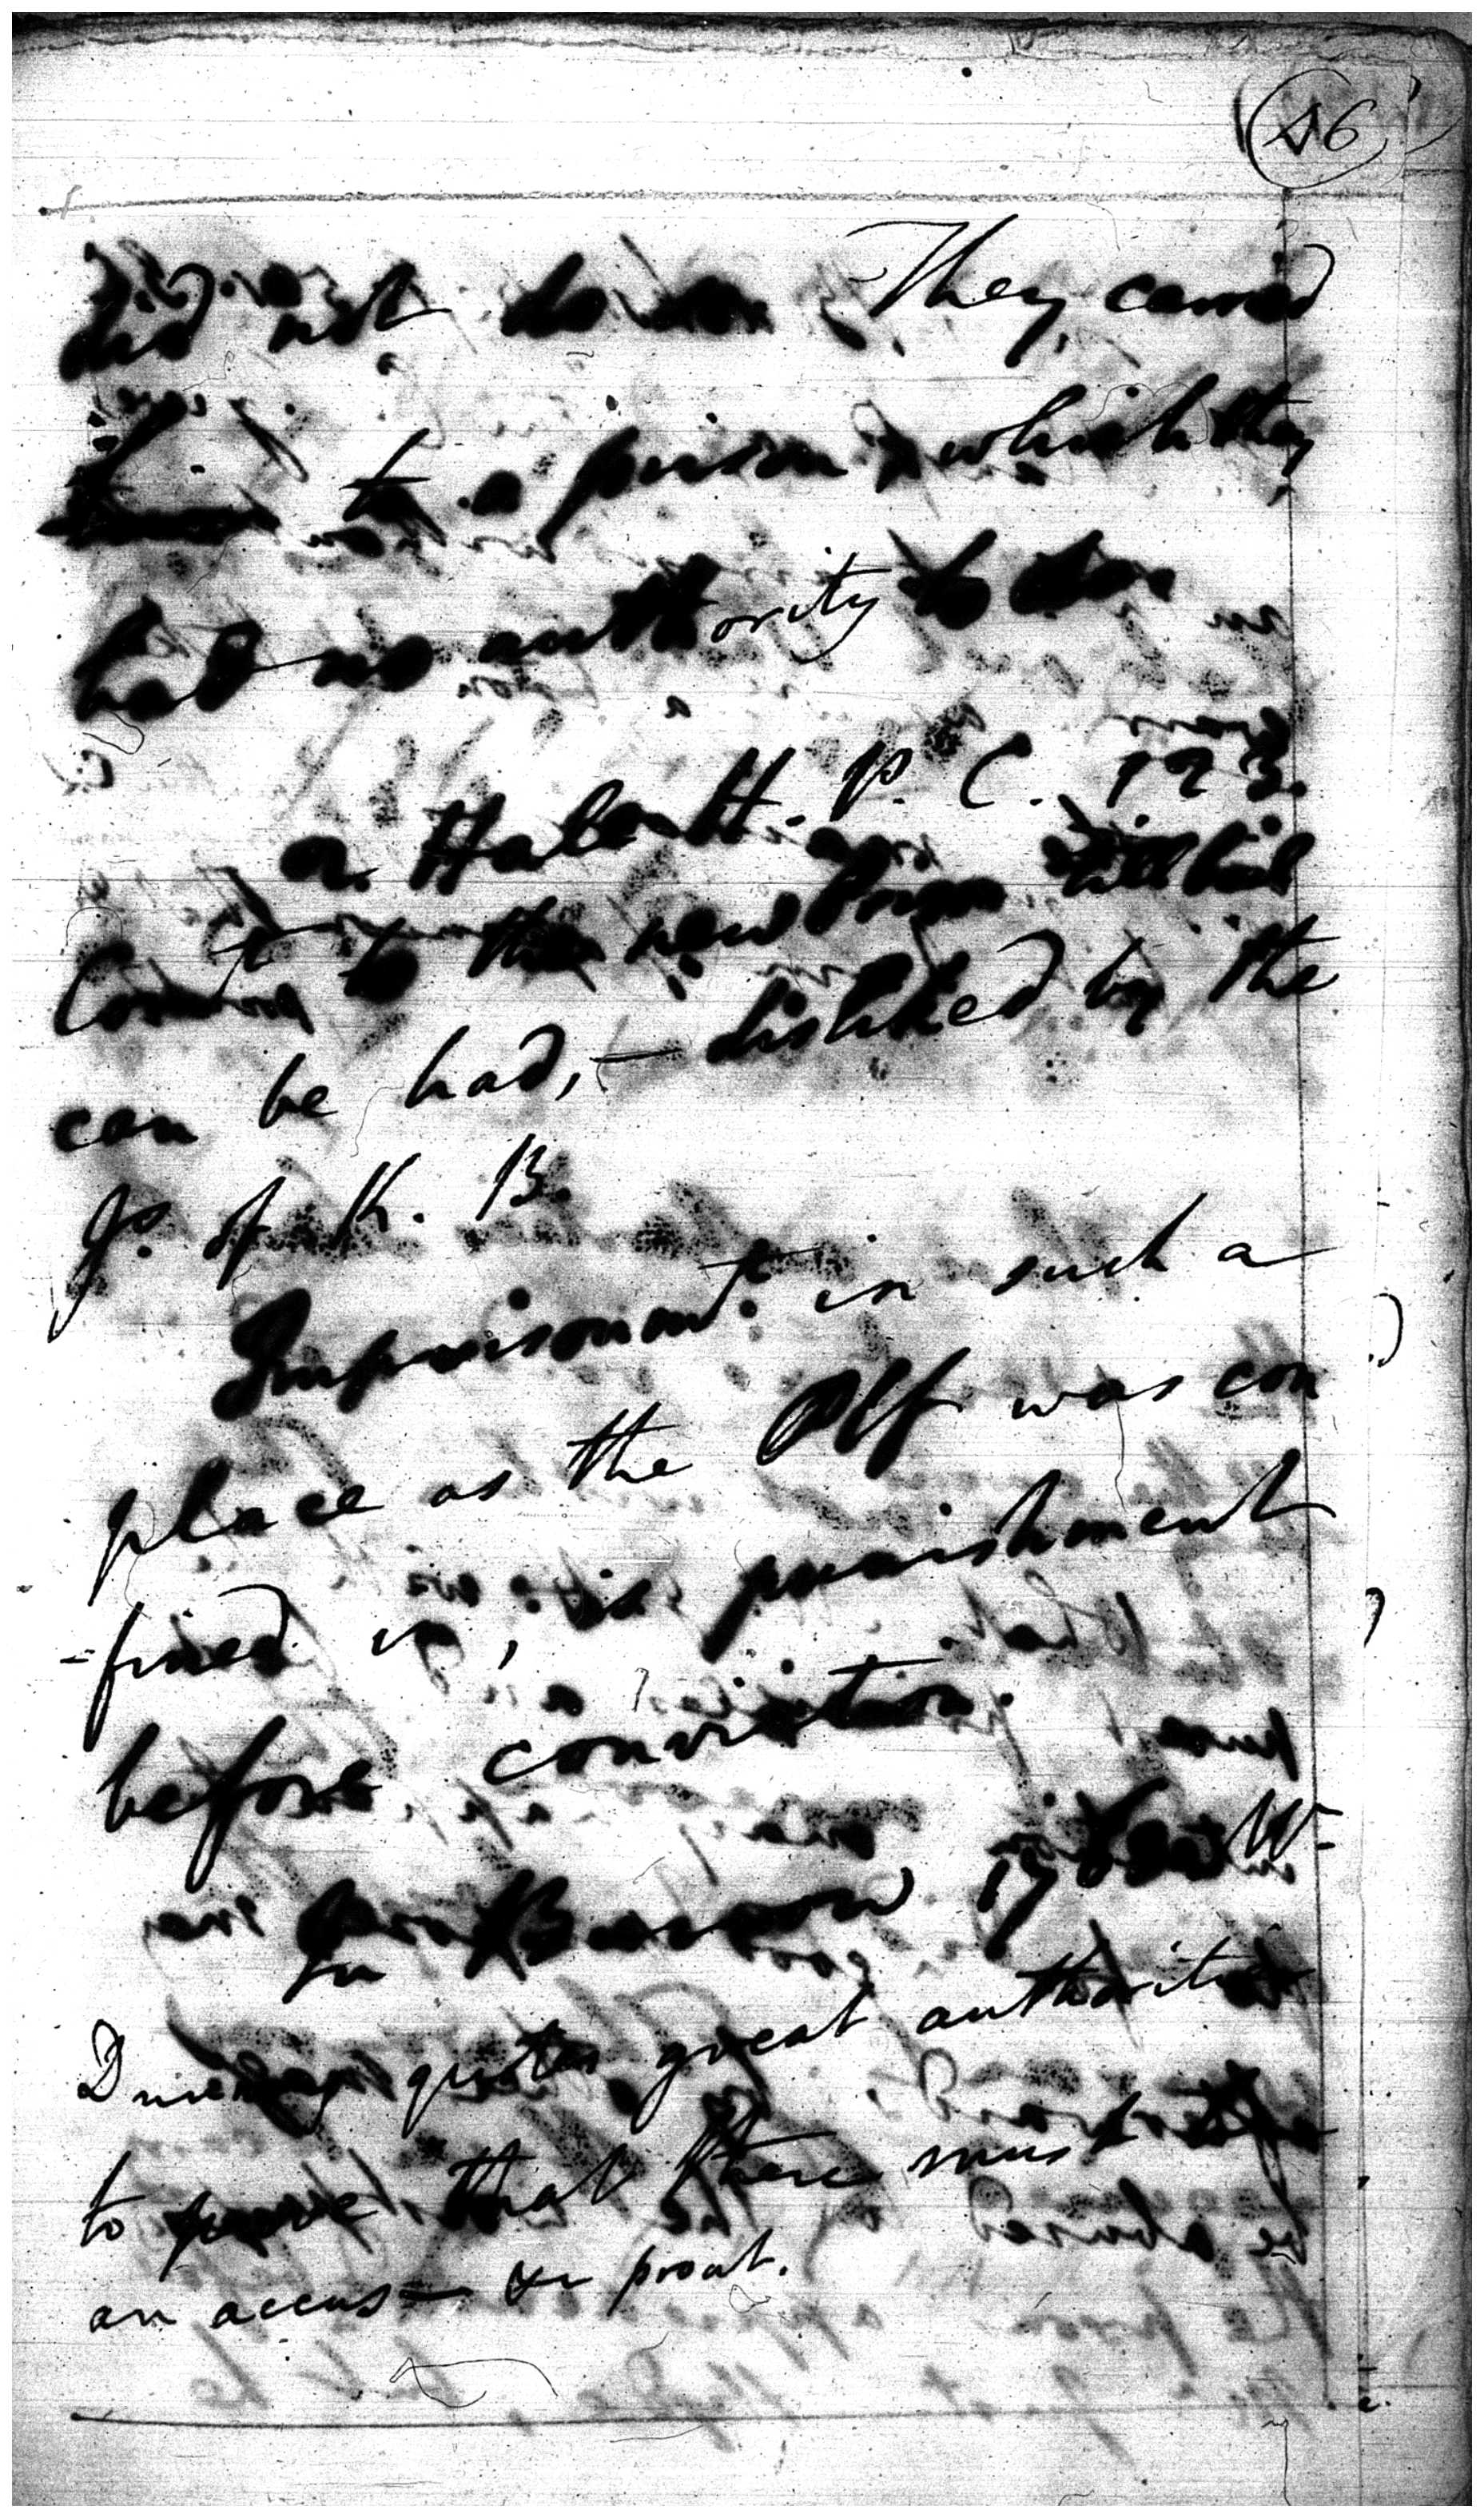 46
did not do so. They carried
him to a prison which they
had no authority to do.
a. Hale H. P. C. 123.
Comt. to the new Prison till bail
can be had, — disliked by the
Js. of K. B.
Imprisonmt. in such a
place as the Plf was con
-fined in, is punishment
before conviction.
Barrow
quotes great authorities
to prove that there must be
an accus— &r proat.